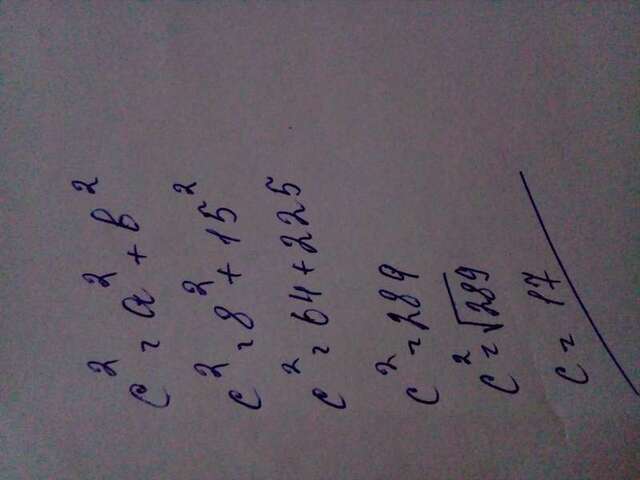 c² = a² + b²
c² = 8² + 15²
c² = 64 + 225
c² = 289
c² = √289
c = 17